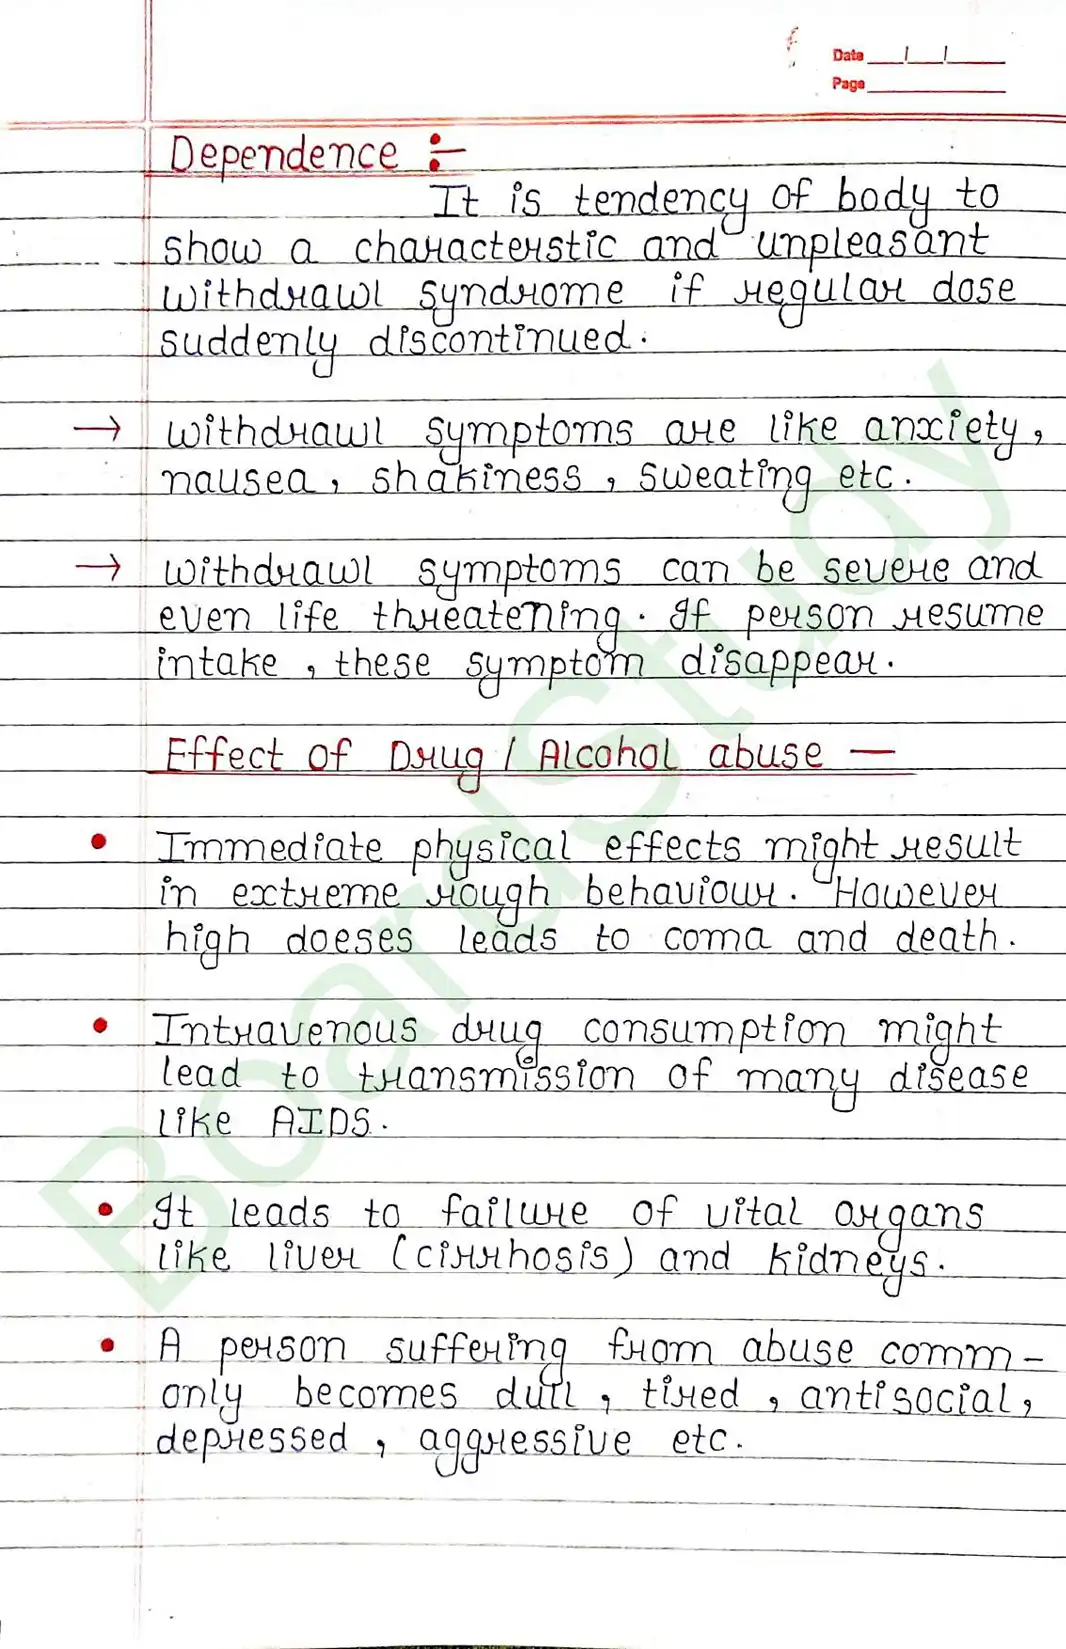 Date __|__|__
Page ________
Dependence :-
It is tendency of body to
show a characterstic and unpleasant
withdrawl syndrome if regular dose
suddenly discontinued.
→ withdrawl symptoms are like anxiety,
nausea, shakiness, sweating etc.
→ withdrawl symptoms can be severe and
even life threatening. If person resume
intake, these symptom disappear.
Effect of Drug / Alcohol abuse —
• Immediate physical effects might result
in extreme rough behaviour. However
high doeses leads to coma and death.
• Intravenous drug consumption might
lead to transmission of many disease
like AIDS.
• It leads to failure of vital organs
like liver (cirrhosis) and kidneys.
• A person suffering from abuse comm-
only becomes dull, tired, antisocial,
depressed, aggressive etc.
BoardStudy